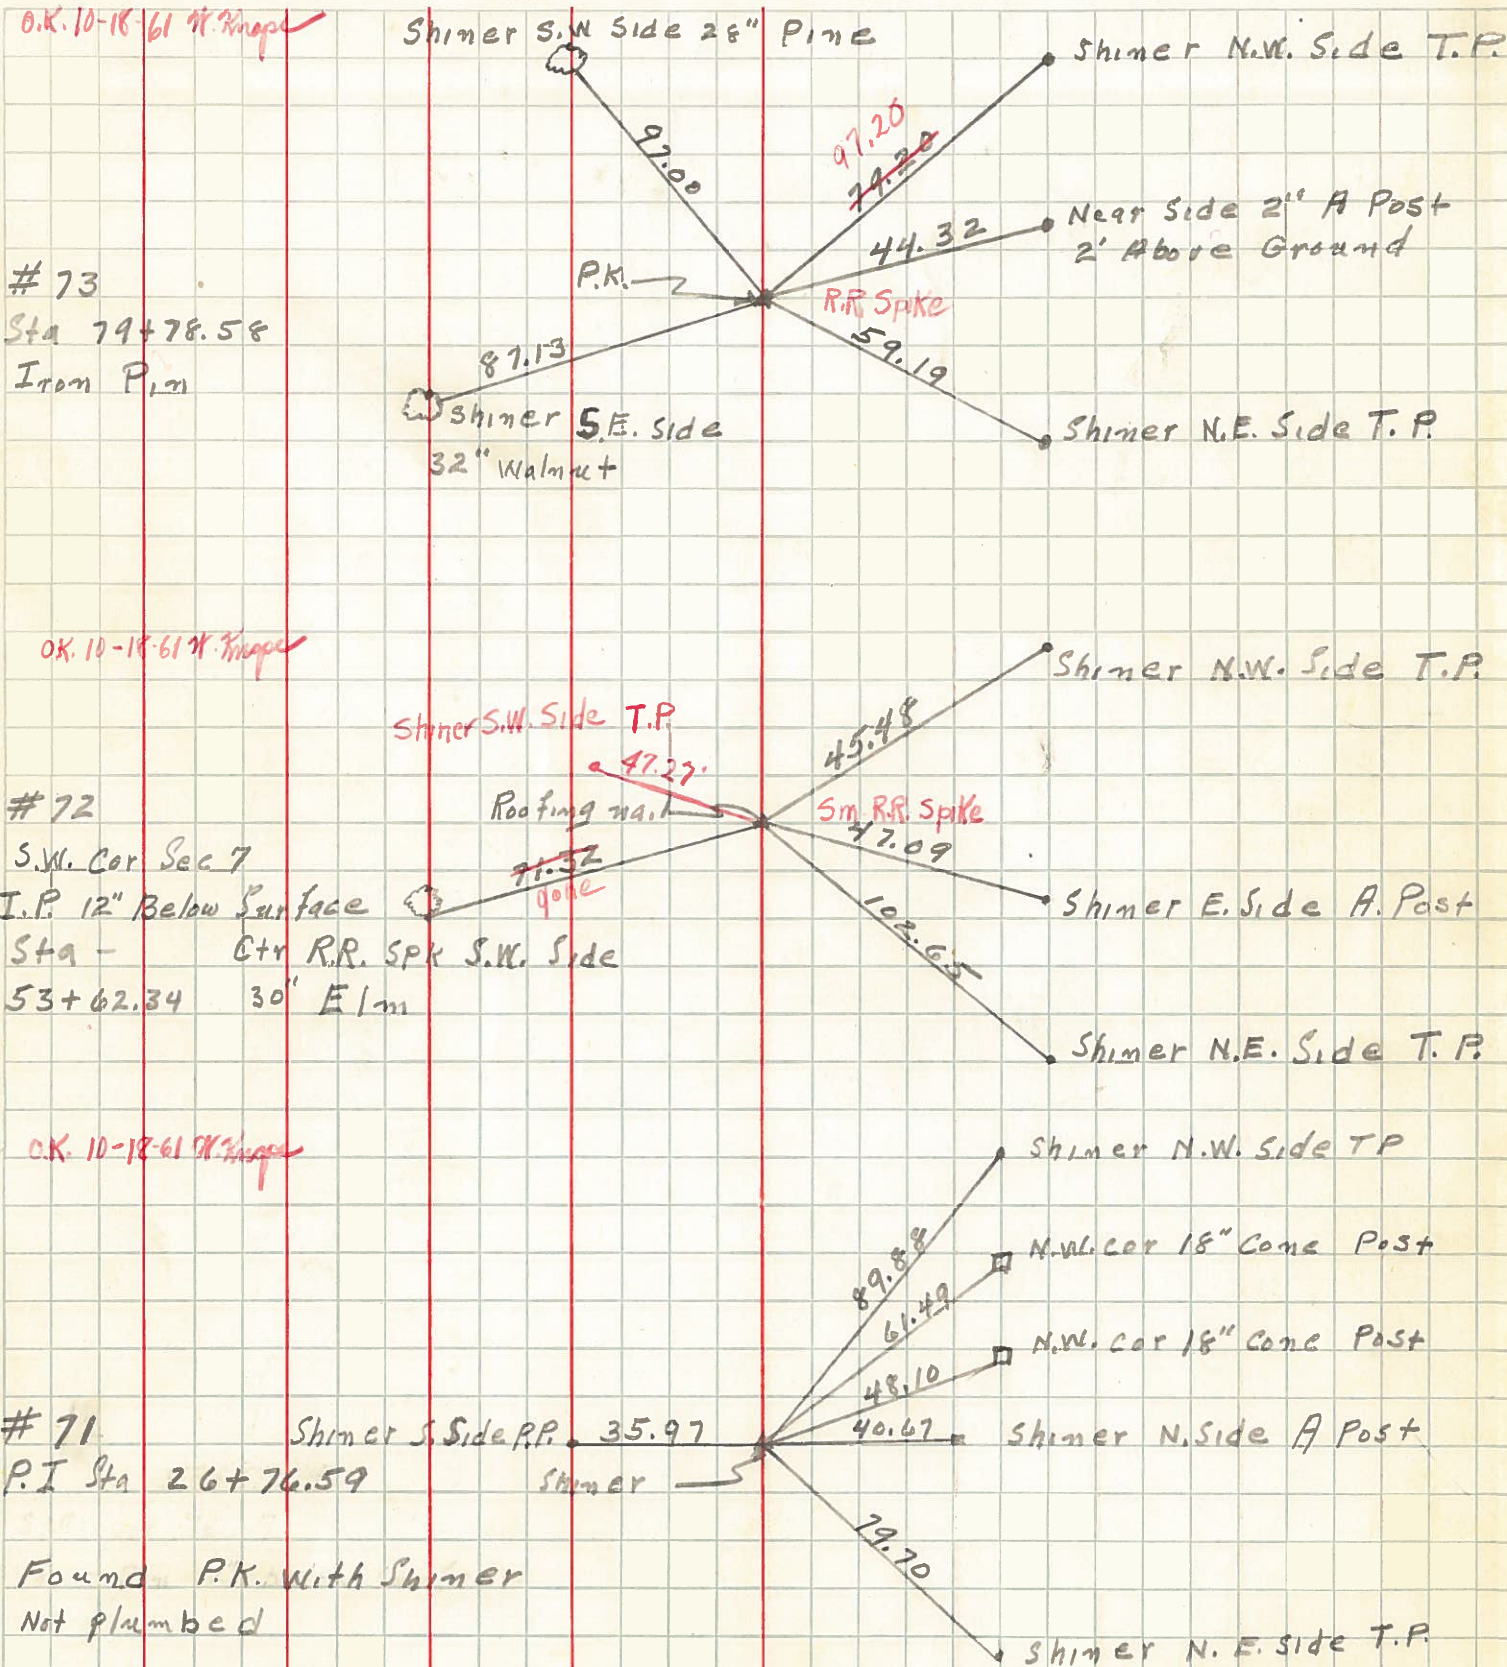 O.K. 10-18-61 W. Knope
Shiner S.W Side 28" Pine
Shiner N.W. Side T.P.
97.00
97.20
79.20
44.32
Near Side 2" A Post
2' Above Ground
# 73
P.K.
R.R. Spike
Sta 79+78.58
Iron Pin
87.13
59.19
Shiner S.E. Side
32" Walnut
Shiner N.E. Side T.P.
O.K. 10-18-61 W. Knope
Shiner N.W. Side T.P.
Shiner S.W. Side T.P.
45.48
47.27
# 72
Roofing nail
Sm R.R. Spike
S.W. Cor Sec 7
71.52
gone
47.09
I.P. 12" Below Surface
Shiner E. Side A. Post
Sta -
Ctr R.R. Spk S.W. Side
53+62.34
30" Elm
102.65
Shiner N.E. Side T.P.
O.K. 10-18-61 W. Knope
Shiner N.W. Side TP
89.88
N.W. cor 18" Conc Post
61.49
N.W. cor 18" Conc Post
48.10
# 71
Shiner S. Side P.P.
35.97
40.67
Shiner N. Side A Post
P.I Sta 26+76.59
Shiner
79.70
Found P.K. with Shiner
Not plumbed
Shiner N.E. Side T.P.